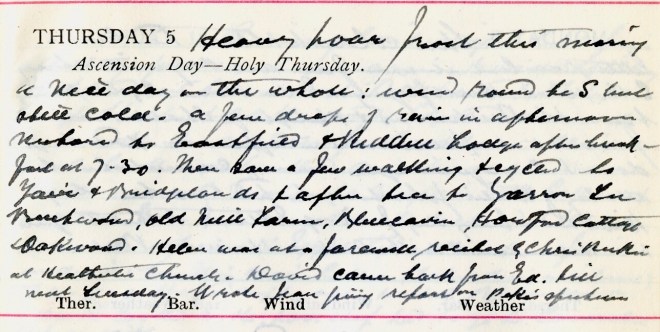 THURSDAY 5 Heavy hoar frost this morning
Ascension Day—Holy Thursday.
a nice day on the whole: wind round to S but
still cold. A few drops of rain in afternoon
to Eastfield & Riddell Lodge after break-
fast at 7-30. Then saw a few walking & cycled to
Yair & Bridgelands & after tea to Yarrow Lea
Beechwood, old Mill Farm, Howford Cottage
& Oakwood. Helen was at a farewell recital by Chris
at Heatherlie Church. David came back from Ed. till
next Tuesday. Wrote Jean giving report on specimen
Ther. Bar. Wind Weather